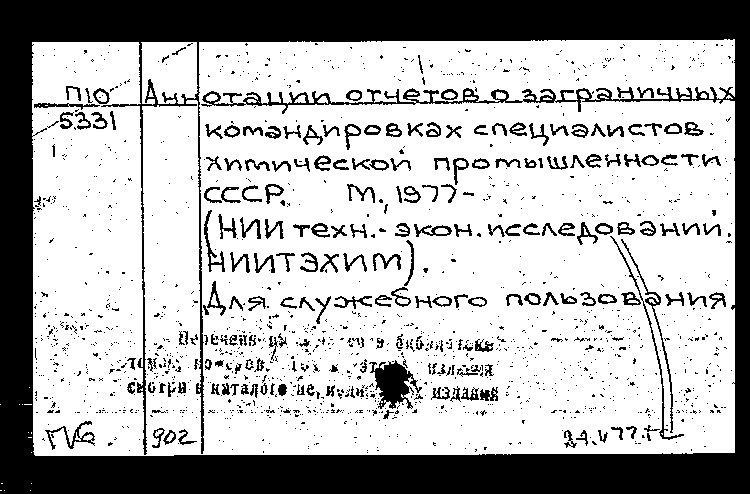 П10 Аннотации отчетов о заграничных
5331 командировках специалистов
химической промышленности
СССР. М., 1977-
(НИИ техн.-экон. исследований.
НИИТЭХИМ).
Для служебного пользования.
Перечень в библиотеке
издания
смотри в каталоге издания
902